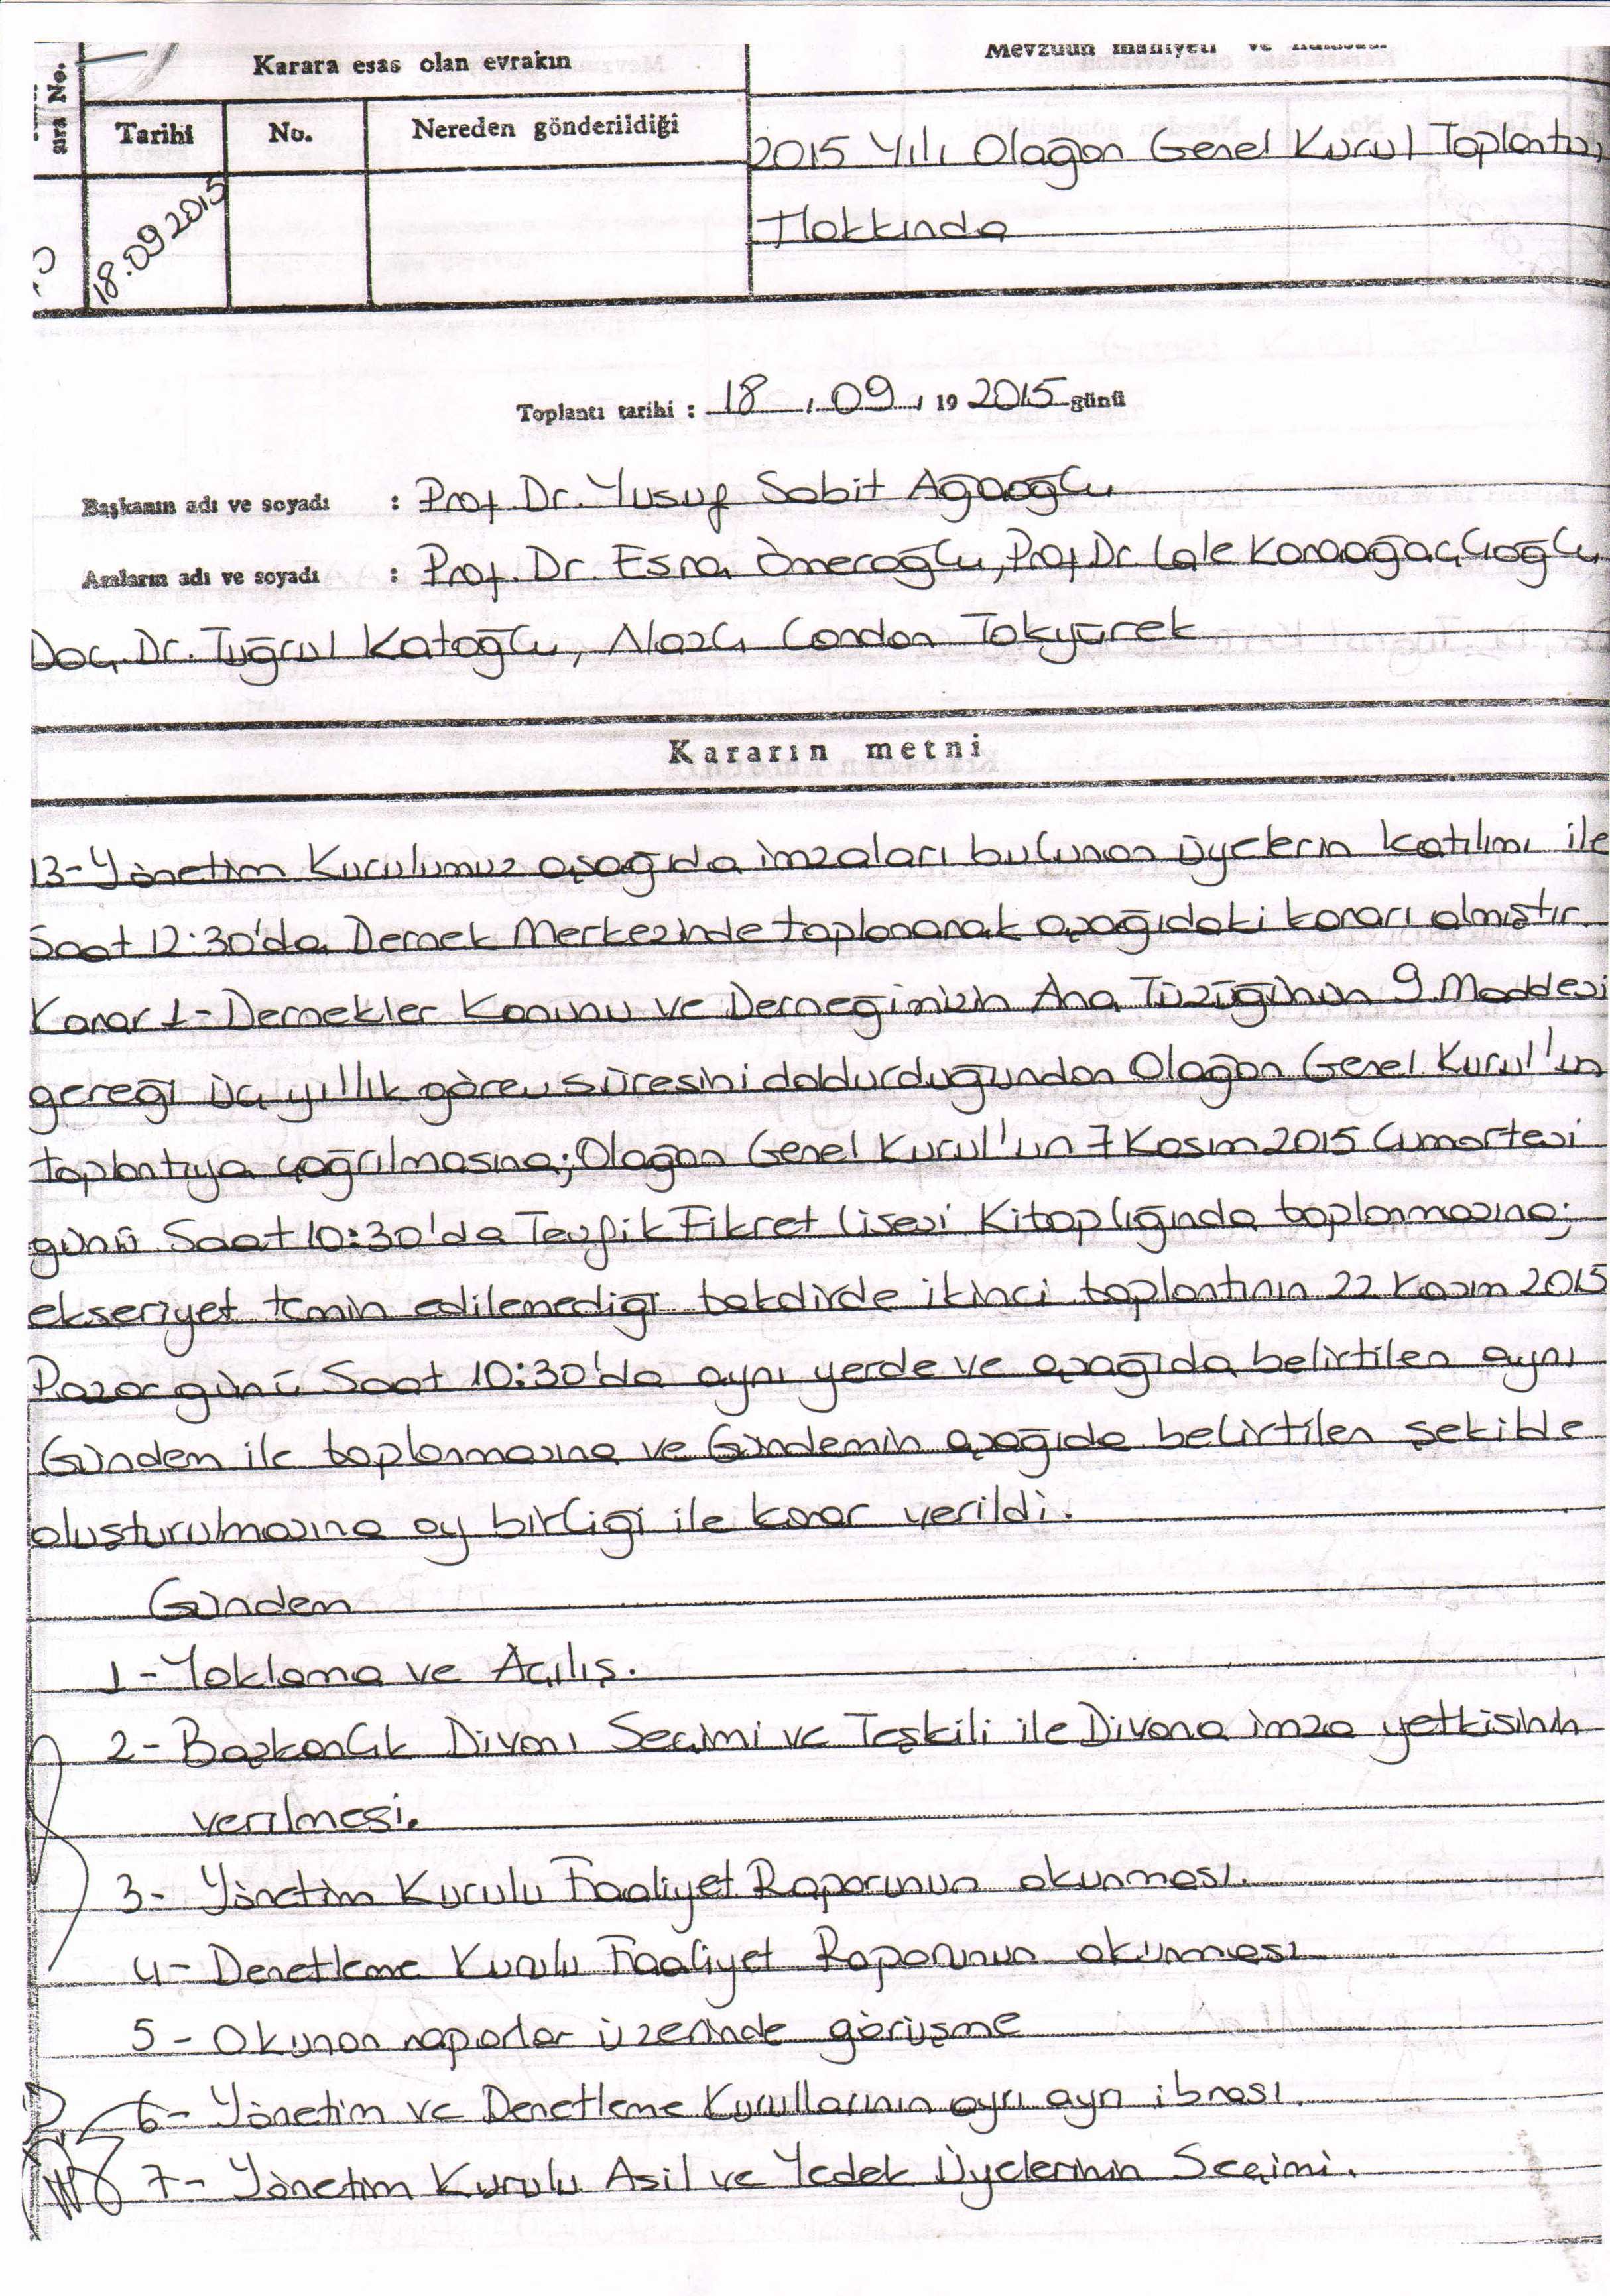 Karara esas olan evrakın
Mevzuun mahiyeti ve hülâsası
ara No.
Tarihi No. Nereden gönderildiği
2015 Yılı Olağan Genel Kurul Toplantısı
Hakkında
18.09.2015
Toplantı tarihi : 18 , 09 , 19 2015 günü
Başkanın adı ve soyadı : Prof. Dr. Yusuf Sabit Ağaoğlu
Azaların adı ve soyadı : Prof. Dr. Esra Ömeroğlu, Prof. Dr. Lale Karaağaçlıoğlu
Doç. Dr. Tuğrul Katoğlu, Nazlı Candan Tokyürek
Kararın metni
13- Yönetim Kurulumuz aşağıda imzaları bulunan üyelerin katılımı ile
Saat 12:30'da Dernek Merkezinde toplanarak aşağıdaki kararı almıştır.
Karar 1- Dernekler Kanunu ve Derneğimizin Ana Tüzüğünün 9. Maddesi
gereği üç yıllık görev süresini doldurduğundan Olağan Genel Kurul'un
toplantıya çağrılmasına; Olağan Genel Kurul'un 7 Kasım 2015 Cumartesi
günü Saat 10:30'da Tevfik Fikret Lisesi Kitaplığında toplanmasına;
ekseriyet temin edilemediği takdirde ikinci toplantının 22 Kasım 2015
Pazar günü Saat 10:30'da aynı yerde ve aşağıda belirtilen aynı
Gündem ile toplanmasına ve Gündemin aşağıda belirtilen şekilde
oluşturulmasına oy birliği ile karar verildi.
Gündem
1- Yoklama ve Açılış.
2- Başkanlık Divanı Seçimi ve Teşkili ile Divana imza yetkisinin
verilmesi.
3- Yönetim Kurulu Faaliyet Raporunun okunması.
4- Denetleme Kurulu Faaliyet Raporunun okunması
5- Okunan raporlar üzerinde görüşme
6- Yönetim ve Denetleme Kurullarının ayrı ayrı ibrası.
7- Yönetim Kurulu Asil ve Yedek Üyelerinin Seçimi.